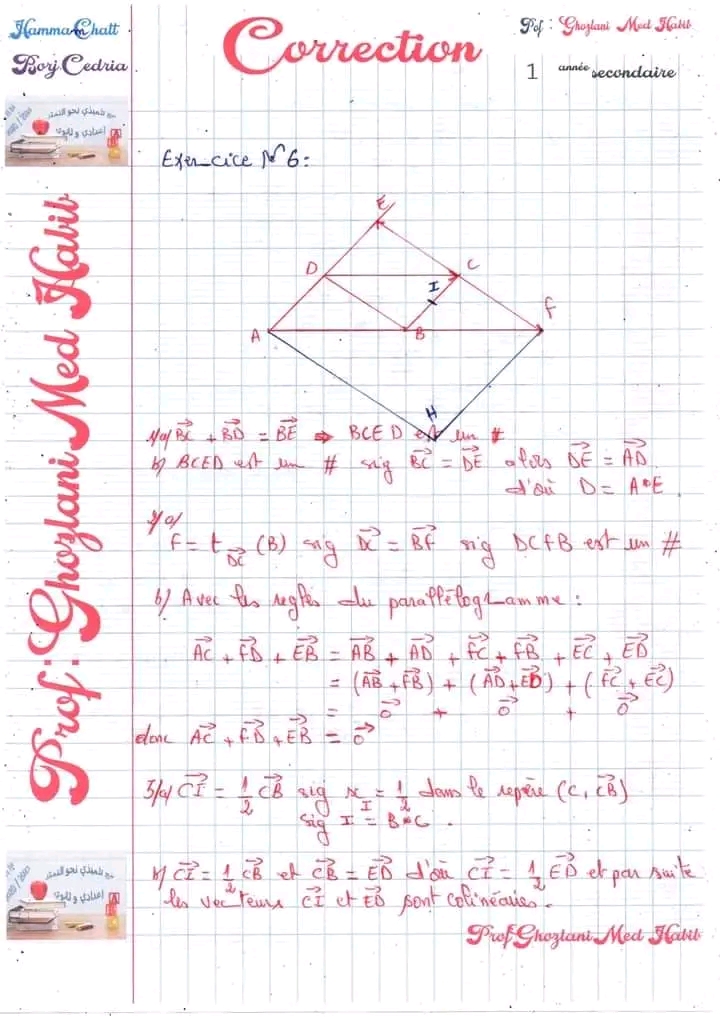 Hammam Chatt
Borj Cedria
Correction
Pof : Ghozlani Med Habib
1 année secondaire
Prof: Ghozlani Med Habib
Exercice N°6:
E
D
C
I
A
B
F
H
1/a/ BC + BD = BE ⇒ BCED est un #
b/ BCED est un # sig BC = DE alors DE = AD
d'où D = A*E
2/a/
F = t DC (B) sig DC = BF sig DCFB est un #
b/ Avec les regles du parallélogramme :
AC + FD + EB = AB + AD + FC + FB + EC + ED
= (AB + FB) + (AD + ED) + (FC + EC)
= 0 + 0 + 0
donc AC + FD + EB = 0
3/a/ CI = 1/2 CB sig x_I = 1/2 dans le repère (C, CB)
sig I = B*C .
b/ CI = 1/2 CB et CB = ED d'où CI = 1/2 ED et par suite
les vecteurs CI et ED sont colinéaires.
Prof Ghozlani Med Habib